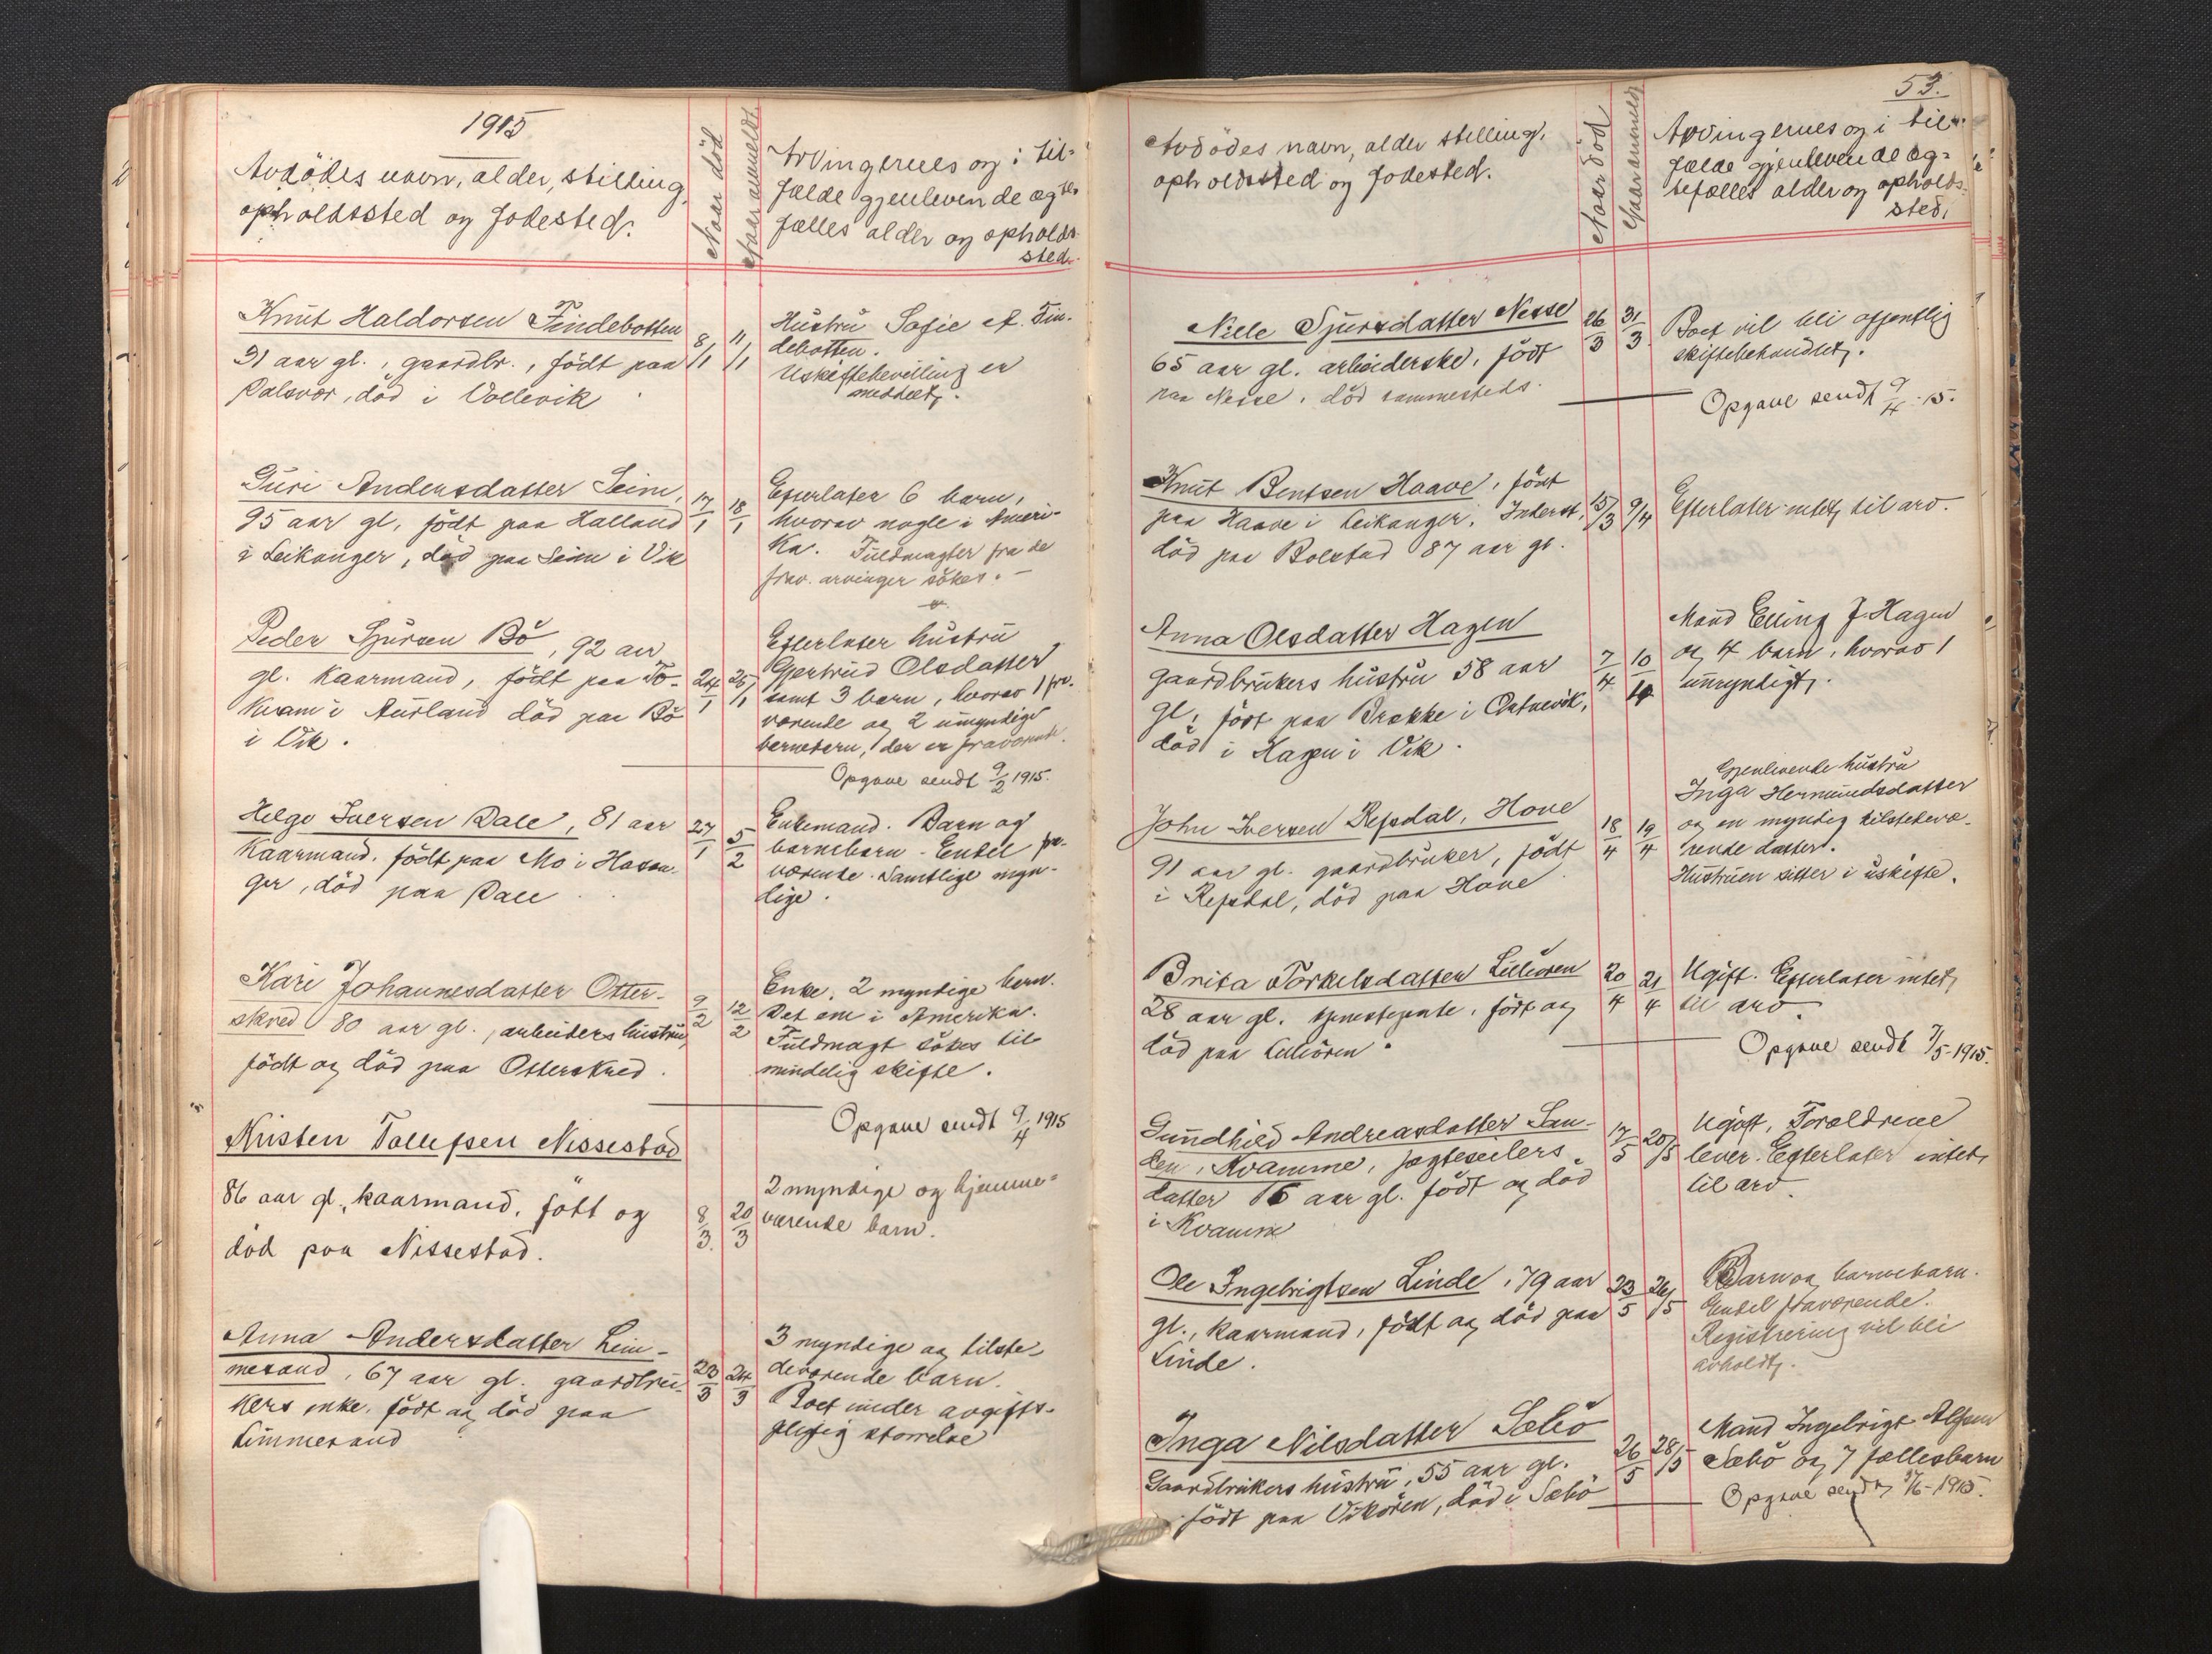 1915
Avdödes navn, alder, stilling,
opholdssted og fodested.
Naar död
Naar anmeldt.
Arvingernes og i til-
fælde gjenlevende ægte-
fælles alder og opholds-
sted.
Knut Haldorsen Findebotten
31 aar gl., gaardbr., födt paa
Dalsvor, död i Vollevik
8/1
11/1
Hustru Sofie A. Fin-
debotten.
Uskiftebevilling er
meddelt.
Guri Andersdatter Seim,
95 aar gl, födt paa Halland
i Leikanger, död paa Seim i Vik
17/1
18/1
Efterlater 6 barn,
hvorav nogle i Ameri-
ka. Fuldmagter fra de
frav. arvinger sökes. -
Peder Sjursen Bö, 92 aar
gl. kaarmand, födt paa To-
kvam i Aurland död paa Bö
i Vik.
24/1
25/1
Efterlater hustru
Gjertrud Olsdatter
samt 3 barn, hvorav 1 fra-
værende og 2 umyndige
barnebarn, der er fraværende.
Opgave sendt 9/2 1915.
Helge Iversen Dale, 81 aar
Kaarmand. födt paa Mo i Havan-
ger, död paa Dale
27/1
5/2
Enkemand. Barn og
barnebarn. Endel fra-
værende. Samtlige myn-
dige.
Kari Johannesdatter Otter-
skred 80 aar gl., arbeiders hustru,
födt og död paa Otterskred.
9/2
12/2
Enke, 2 myndige barn.
Det ene i Amerika.
Fuldmagt sökes til
mindelig skifte.
Opgave sendt 9/4 1915
Kristen Tollefsen Nissestad
86 aar gl., kaarmand, fött og
död paa Nissestad.
8/3.
20/3
2 myndige og hjemme-
værende barn.
Anna Andersdatter Lim-
mesand, 67 aar gl. gaardbru-
kers enke. födt og död paa
Limmesand
23/3
24/3
3 myndige og tilste-
deværende barn.
Boet under avgifts-
pligtig störrelse
53.
Avdödes navn, alder stilling,
opholdssted og fodested.
Naar död
Naar anmeldt
Arvingernes og i til-
fælde gjenlevende æg-
tefælles alder og opholds-
sted.
Niele Sjursdatter Nesse
65 aar gl. arbeiderske, födt
paa Nesse, död sammesteds.
26/3
31/3
Boet vil bli offentlig
skiftebehandlet.
Opgave sendt 9/4-15.
Knut Bentsen Haave, födt
paa Haave i Leikanger. Inderst,
död paa Bolstad 87 aar gl.
15/3
9/4
Efterlater intet til arv.
Anna Olsdatter Hagen
gaardbrukers hustru 58 aar
gl, födt paa Brække i Ortnevik,
död i Hagen i Vik.
7/4
10/4
Mand Elling J. Hagen
og 4 barn, hvorav 1
umyndigt.
John Iversen Refsdal, Hove
91 aar gl. gaardbruker, födt
i Refsdal, död paa Hove
18/4
19/4
Gjenlevende hustru
Inga Hermundsdatter
og en myndig tilstedevæ-
rende datter.
Hustruen sitter i uskifte.
Brita Torkelsdatter Lilleören
28 aar gl. tjenestejente, födt og
död paa Lilleören.
20/4
21/4
Ugift. Efterlater intet
til arv.
Opgave sendt 7/5-1915.
Gundhild Andreasdatter San-
den, Kvamme, jagteseilers
datter 16 aar gl. födt og död
i Kvamme
17/5
20/5
Ugift, Forældrene
lever. Efterlater intet
til arv.
Ole Ingebrigtsen Linde, 79 aar
gl., kaarmand, födt og död paa
Linde.
23/5
26/5
Barn og barnebarn.
Endel fraværende.
Registrering vil bli
avholdt.
Inga Nilsdatter Sæbö
Gaardbrukers hustru, 55 aar gl.
födt paa Vikören, död i Sæbö
26/5
28/5
Mand Ingebrigt Alfsen
Sæbö og 7 fællesbarn
Opgave sendt /6-1915.